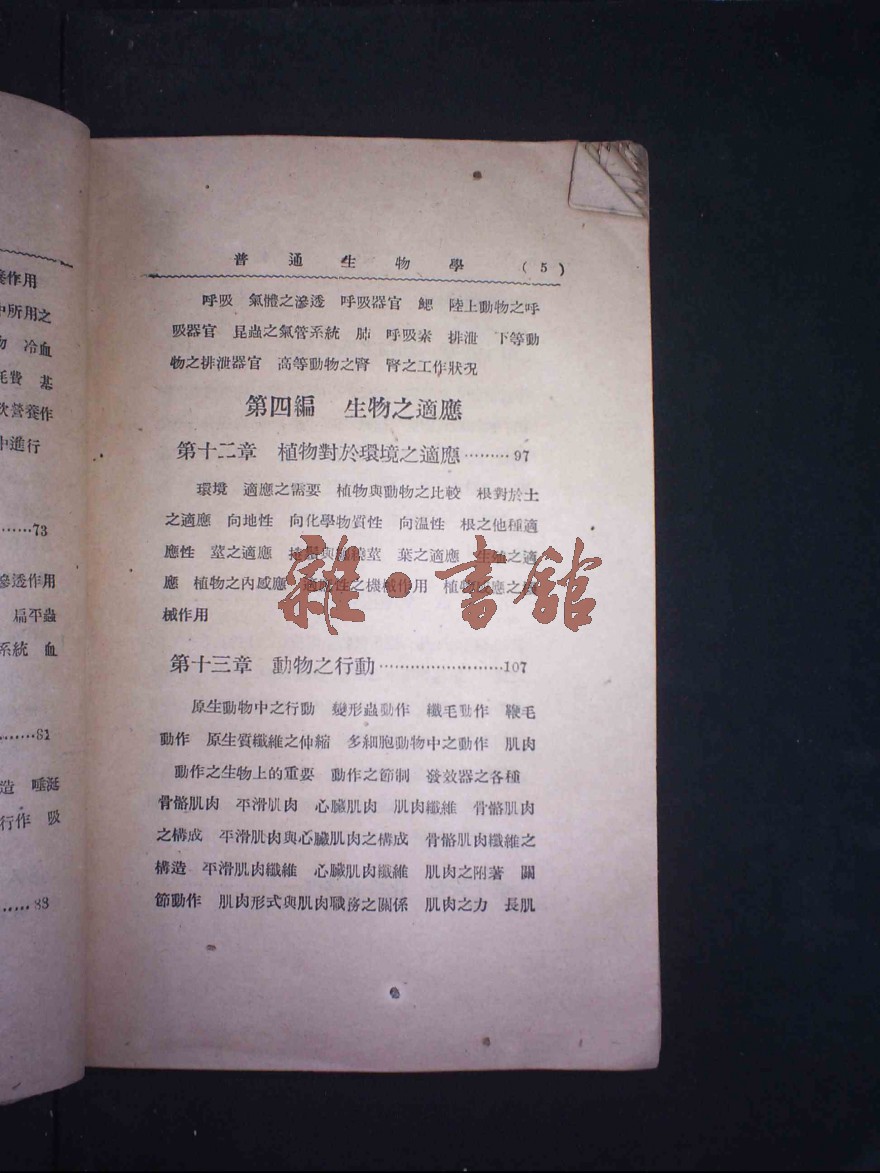 普通生物學 (5)
呼吸 氣體之滲透 呼吸器官 鰓 陸上動物之呼
吸器官 昆蟲之氣管系統 肺 呼吸素 排泄 下等動
物之排泄器官 高等動物之腎 腎之工作狀況
第四編 生物之適應
第十二章 植物對於環境之適應………97
環境 適應之需要 植物與動物之比較 根對於土
之適應 向地性 向化學物質性 向溫性 根之他種適
應性 莖之適應 與纏繞莖 葉之適應 生殖之適
應 植物之內感應 適應性之機械作用 植物感應之
械作用
第十三章 動物之行動……………………107
原生動物中之行動 變形蟲動作 纖毛動作 鞭毛
動作 原生質纖維之伸縮 多細胞動物中之動作 肌肉
動作之生物上的重要 動作之節制 發效器之各種
骨骼肌肉 平滑肌肉 心臟肌肉 肌肉纖維 骨骼肌肉
之構成 平滑肌肉與心臟肌肉之構成 骨骼肌肉纖維之
構造 平滑肌肉纖維 心臟肌肉纖維 肌肉之附著 關
節動作 肌肉形式與肌肉職務之關係 肌肉之力 長肌
雜·書館
作用
中所用之
物 冷血
耗費 基
次營養作
中進行
……73
滲透作用
扁平蟲
系統 血
……81
造 唾涎
行作 吸
……88